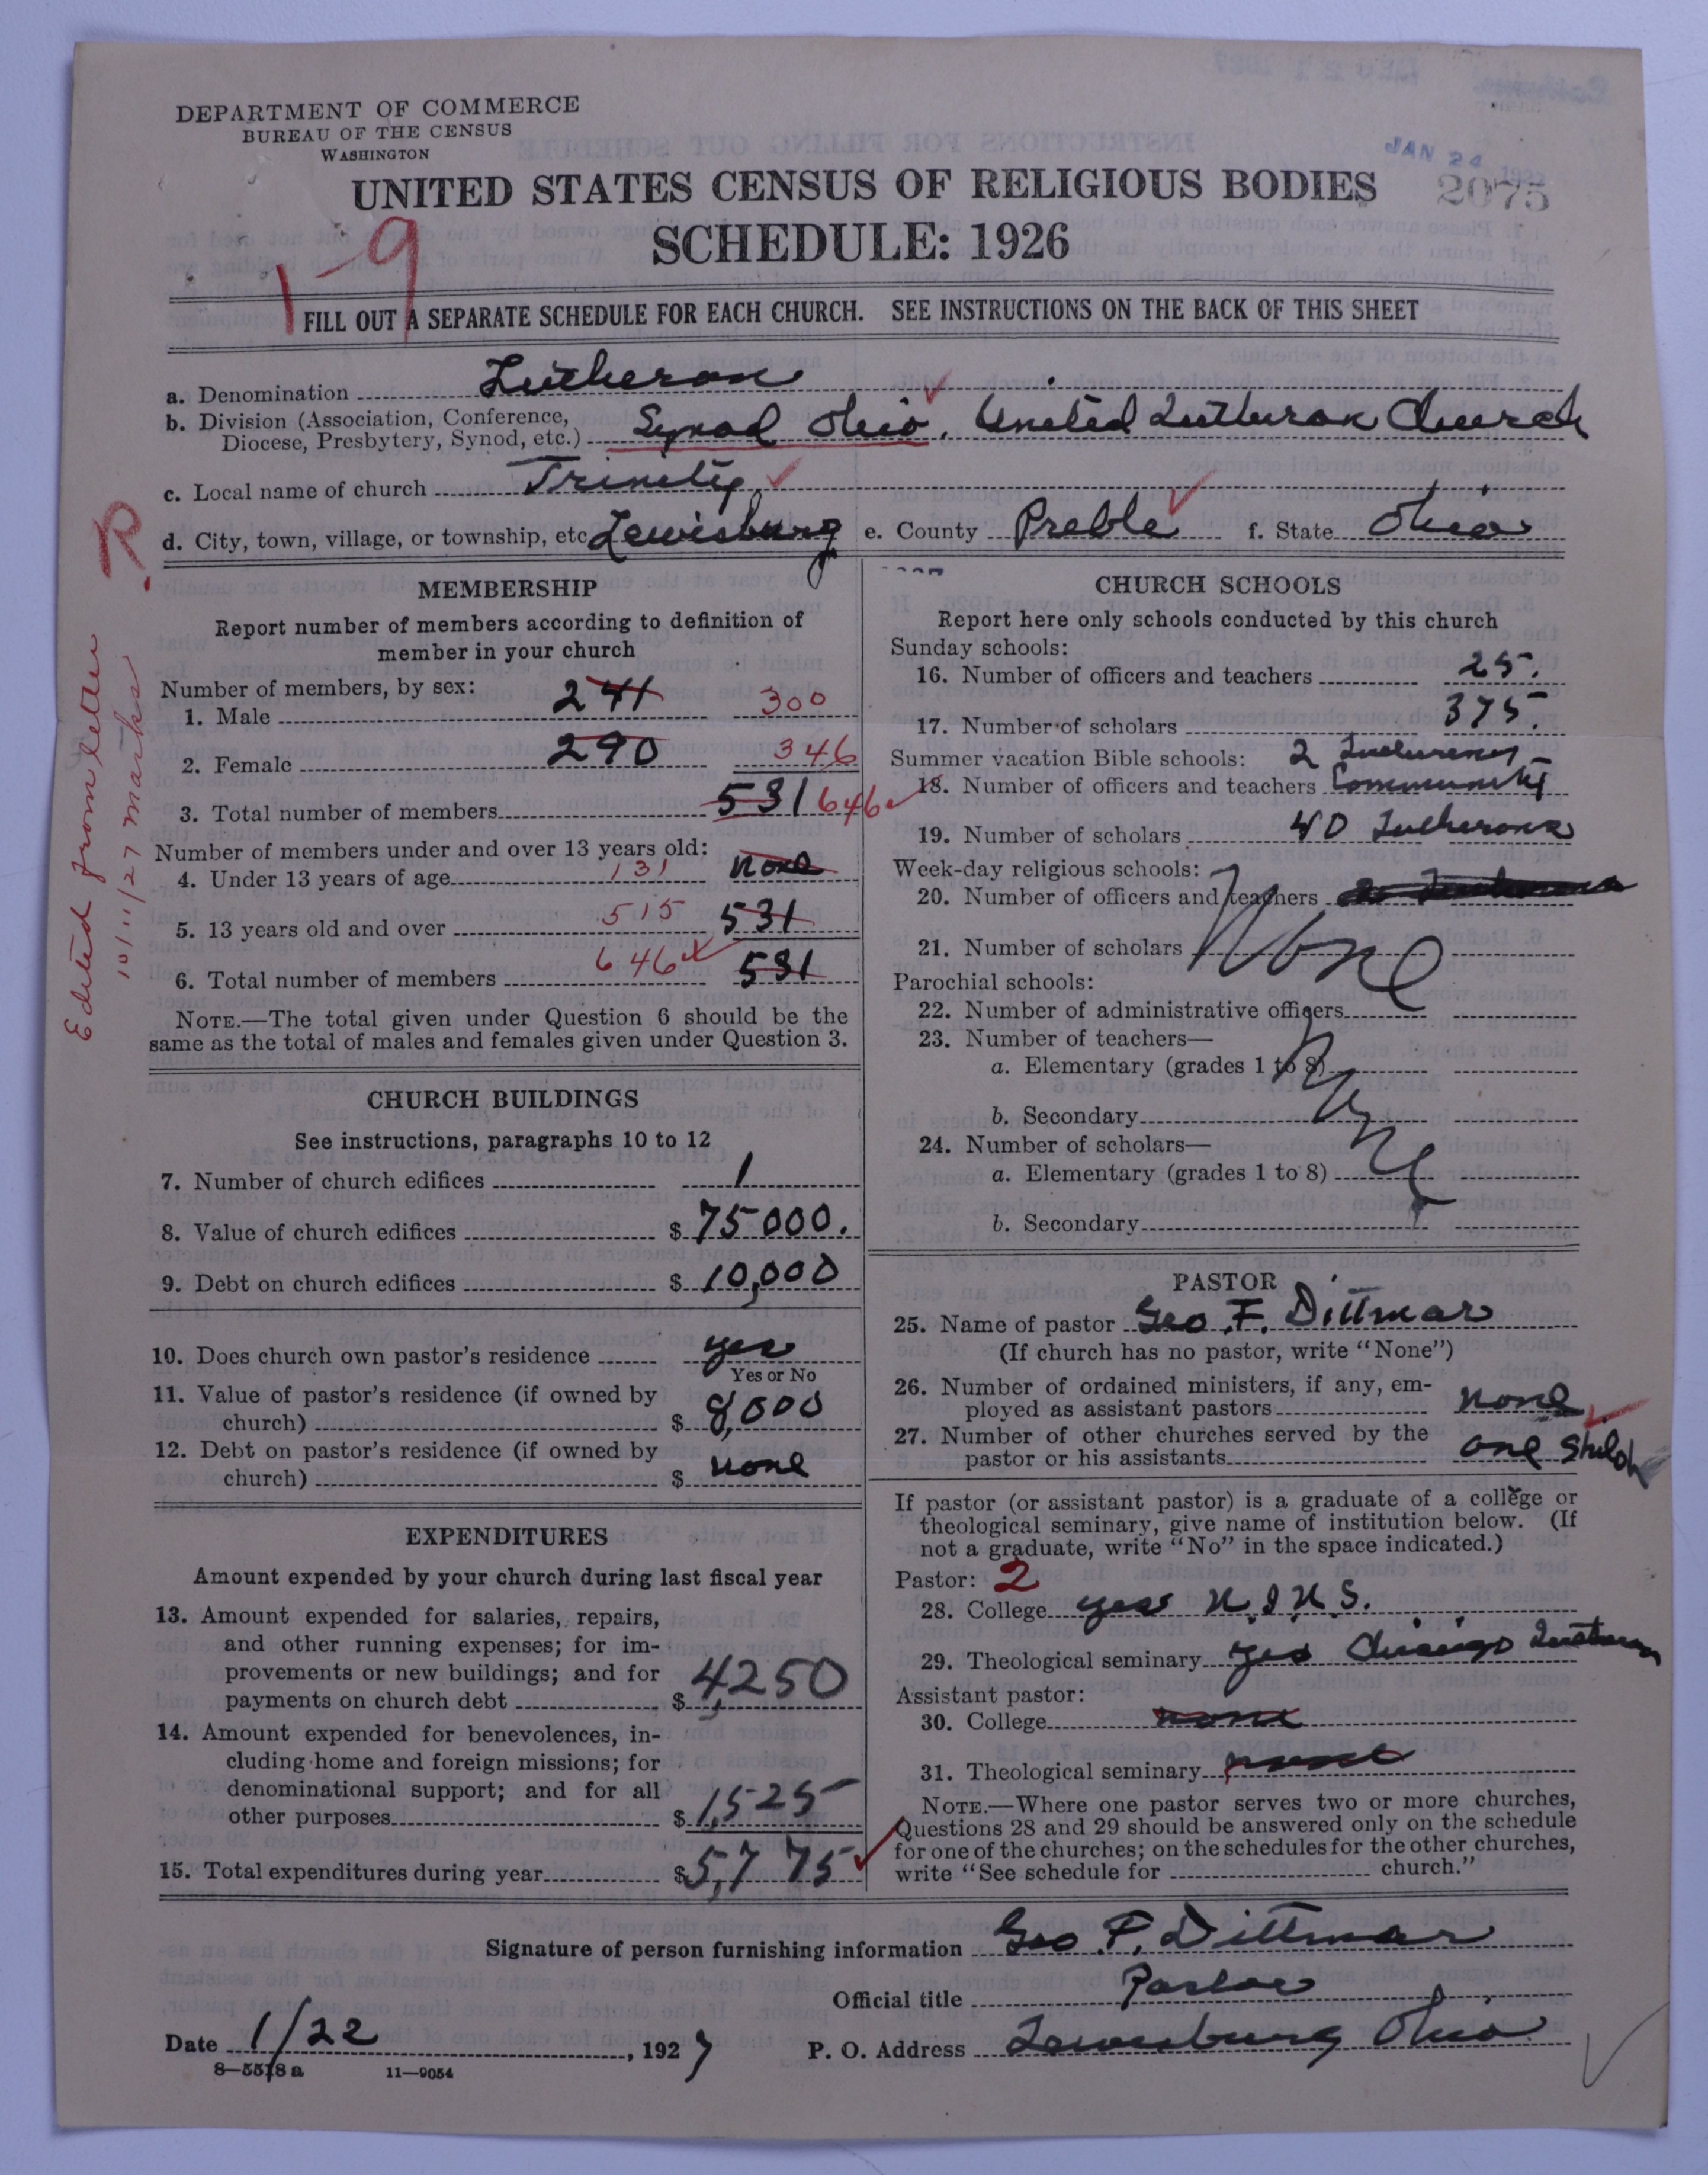 DEPARTMENT OF COMMERCE
BUREAU OF THE CENSUS
WASHINGTON
JAN 24
UNITED STATES CENSUS OF RELIGIOUS BODIES
2075
SCHEDULE: 1926
1-9
FILL OUT A SEPARATE SCHEDULE FOR EACH CHURCH. SEE INSTRUCTIONS ON THE BACK OF THIS SHEET
a. Denomination Lutheran
b. Division (Association, Conference,
Diocese, Presbytery, Synod, etc.) Synod Ohio. United Lutheran Church
c. Local name of church Trinity
d. City, town, village, or township, etc Lewisburg e. County Preble f. State Ohio
R.
Edited from letter
10/11/27 Marks
MEMBERSHIP
Report number of members according to definition of
member in your church
Number of members, by sex:
1. Male 241 300
2. Female 290 346
3. Total number of members 531 646
Number of members under and over 13 years old:
4. Under 13 years of age 131 none
5. 13 years old and over 515 531
6. Total number of members 646 531
NOTE.—The total given under Question 6 should be the
same as the total of males and females given under Question 3.
CHURCH BUILDINGS
See instructions, paragraphs 10 to 12
7. Number of church edifices 1
8. Value of church edifices $ 75000.
9. Debt on church edifices $ 10,000
10. Does church own pastor's residence yes
Yes or No
11. Value of pastor's residence (if owned by
church) $ 8,000
12. Debt on pastor's residence (if owned by
church) $ none
EXPENDITURES
Amount expended by your church during last fiscal year
13. Amount expended for salaries, repairs,
and other running expenses; for im-
provements or new buildings; and for
payments on church debt $ 4,250
14. Amount expended for benevolences, in-
cluding home and foreign missions; for
denominational support; and for all
other purposes $ 1,525
15. Total expenditures during year $ 5,775
CHURCH SCHOOLS
Report here only schools conducted by this church
Sunday schools:
16. Number of officers and teachers 25.
17. Number of scholars 375.
Summer vacation Bible schools: 2 Lutherans
18. Number of officers and teachers Community
19. Number of scholars 40 Lutherans
Week-day religious schools:
20. Number of officers and teachers
21. Number of scholars None
Parochial schools:
22. Number of administrative officers
23. Number of teachers—
a. Elementary (grades 1 to 8)
b. Secondary None
24. Number of scholars—
a. Elementary (grades 1 to 8)
b. Secondary
PASTOR
25. Name of pastor Geo. F. Dittmar
(If church has no pastor, write "None")
26. Number of ordained ministers, if any, em-
ployed as assistant pastors none
27. Number of other churches served by the
pastor or his assistants one Shiloh
If pastor (or assistant pastor) is a graduate of a college or
theological seminary, give name of institution below. (If
not a graduate, write "No" in the space indicated.)
Pastor: 2
28. College yes N.I.N.S.
29. Theological seminary yes Chicago Lutheran
Assistant pastor:
30. College none
31. Theological seminary none
NOTE.—Where one pastor serves two or more churches,
Questions 28 and 29 should be answered only on the schedule
for one of the churches; on the schedules for the other churches,
write "See schedule for church."
Signature of person furnishing information Geo. F. Dittmar
Official title Pastor
Date 1/22, 1927 P. O. Address Lewisburg Ohio
8—5518 a 11—9054